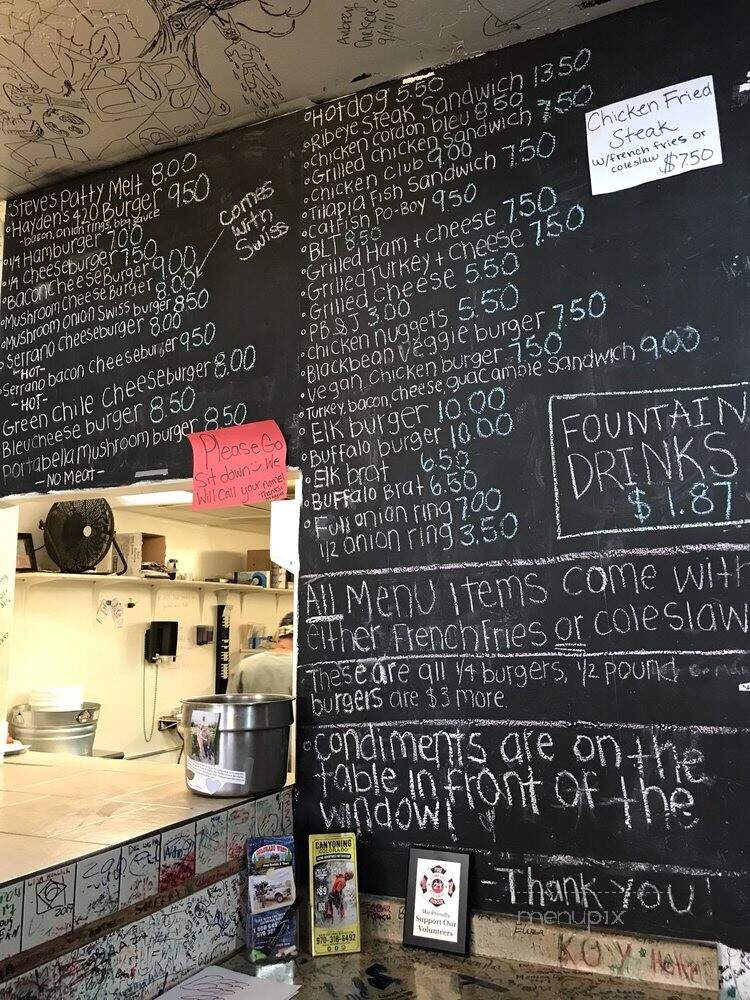 Steve's Patty Melt 8.00
Hayden's 420 Burger 9.50
-bacon, onion rings, bbq sauce
1/4 Hamburger 7.00
1/4 Cheeseburger 7.50
Bacon Cheese Burger 9.00
Mushroom Cheese Burger 8.00
Mushroom onion Swiss burger 8.50
Serrano cheeseburger 8.00
-HOT-
Serrano bacon cheeseburger 9.50
-HOT-
Green Chile Cheeseburger 8.00
Bleucheese burger 8.50
portabella mushroom burger 8.50
-NO Meat-
comes
with
Swiss
Please Go
Sit down We
Will Call your name
Thanks
Hotdog 5.50
Ribeye Steak Sandwich 13.50
Chicken cordon bleu 8.50
Grilled Chicken Sandwich 7.50
Chicken Club 9.00
Tilapia Fish Sandwich 7.50
Catfish Po-Boy 9.50
BLT 8.50
Grilled Ham + Cheese 7.50
Grilled Turkey + Cheese 7.50
Grilled cheese 5.50
PB&J 3.00
Chicken nuggets 5.50
Blackbean veggie burger 7.50
Vegan Chicken burger 7.50
Turkey, bacon, cheese, guacamole Sandwich 9.00
Elk burger 10.00
Buffalo burger 10.00
Elk brat 6.50
Buffalo Brat 6.50
Full onion ring 7.00
1/2 onion ring 3.50
Chicken Fried
Steak
w/french fries or
coleslaw $7.50
FOUNTAIN
DRINKS
$1.87
All Menu Items come with
either French fries or coleslaw
These are all 1/4 burgers, 1/2 pound
burgers are $3 more.
Condiments are on the
table in front of the
window!
-Thank you!
menupix
COLORADO WEST
CANYONING
COLORADO
$89
970-318-6492
21
We Proudly
Support Our
Volunteers